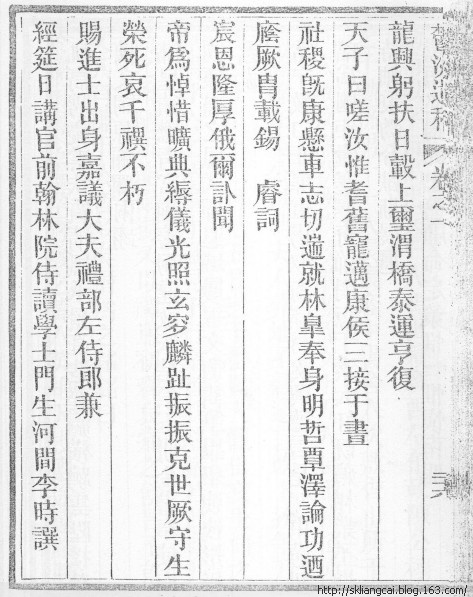 鬱洲遺稿 卷之
龍興躬扶日轂上璽渭橋泰運亨復
天子曰嗟汝惟耆舊寵邁康侯三接于晝
社稷旣康懸車志切遄就林臯奉身明哲覃澤論功迺
廕厥胄載錫　睿詞
宸恩隆厚俄爾訃聞
帝爲悼惜曠典縟儀光照玄穸麟趾振振克世厥守生
榮死哀千禩不朽
賜進士出身嘉議大夫禮部左侍郎兼
經筵日講官前翰林院侍讀學士門生河間李時譔
http://skliangcai.blog.163.com/